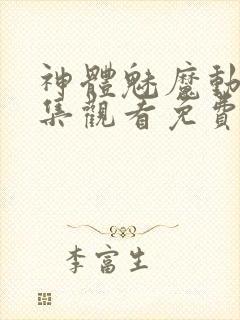 神體魅魔動
集觀看免費
李富生